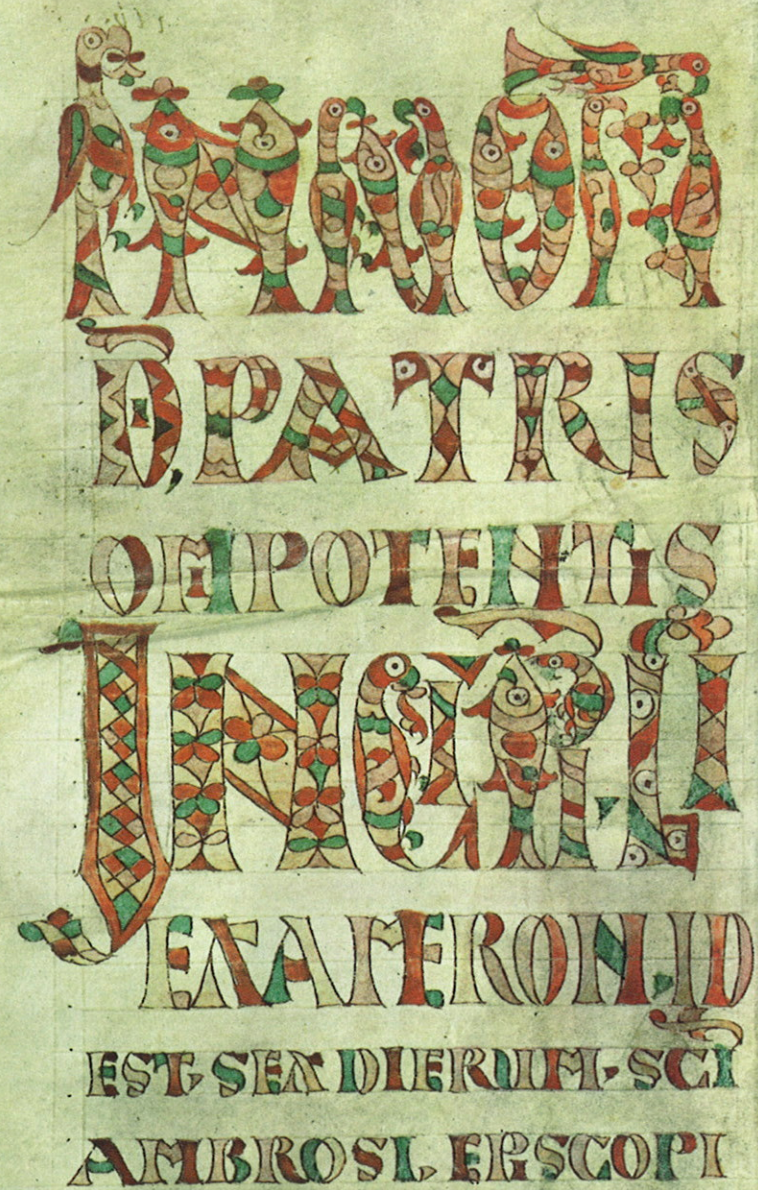 INNOM̅
D̅, PATRIS
OMPOTENTIS
INCIP̅. LI
EXAMERON. ID
EST. SEX DIERUM. SCI̅
AMBROSI, EPISCOPI